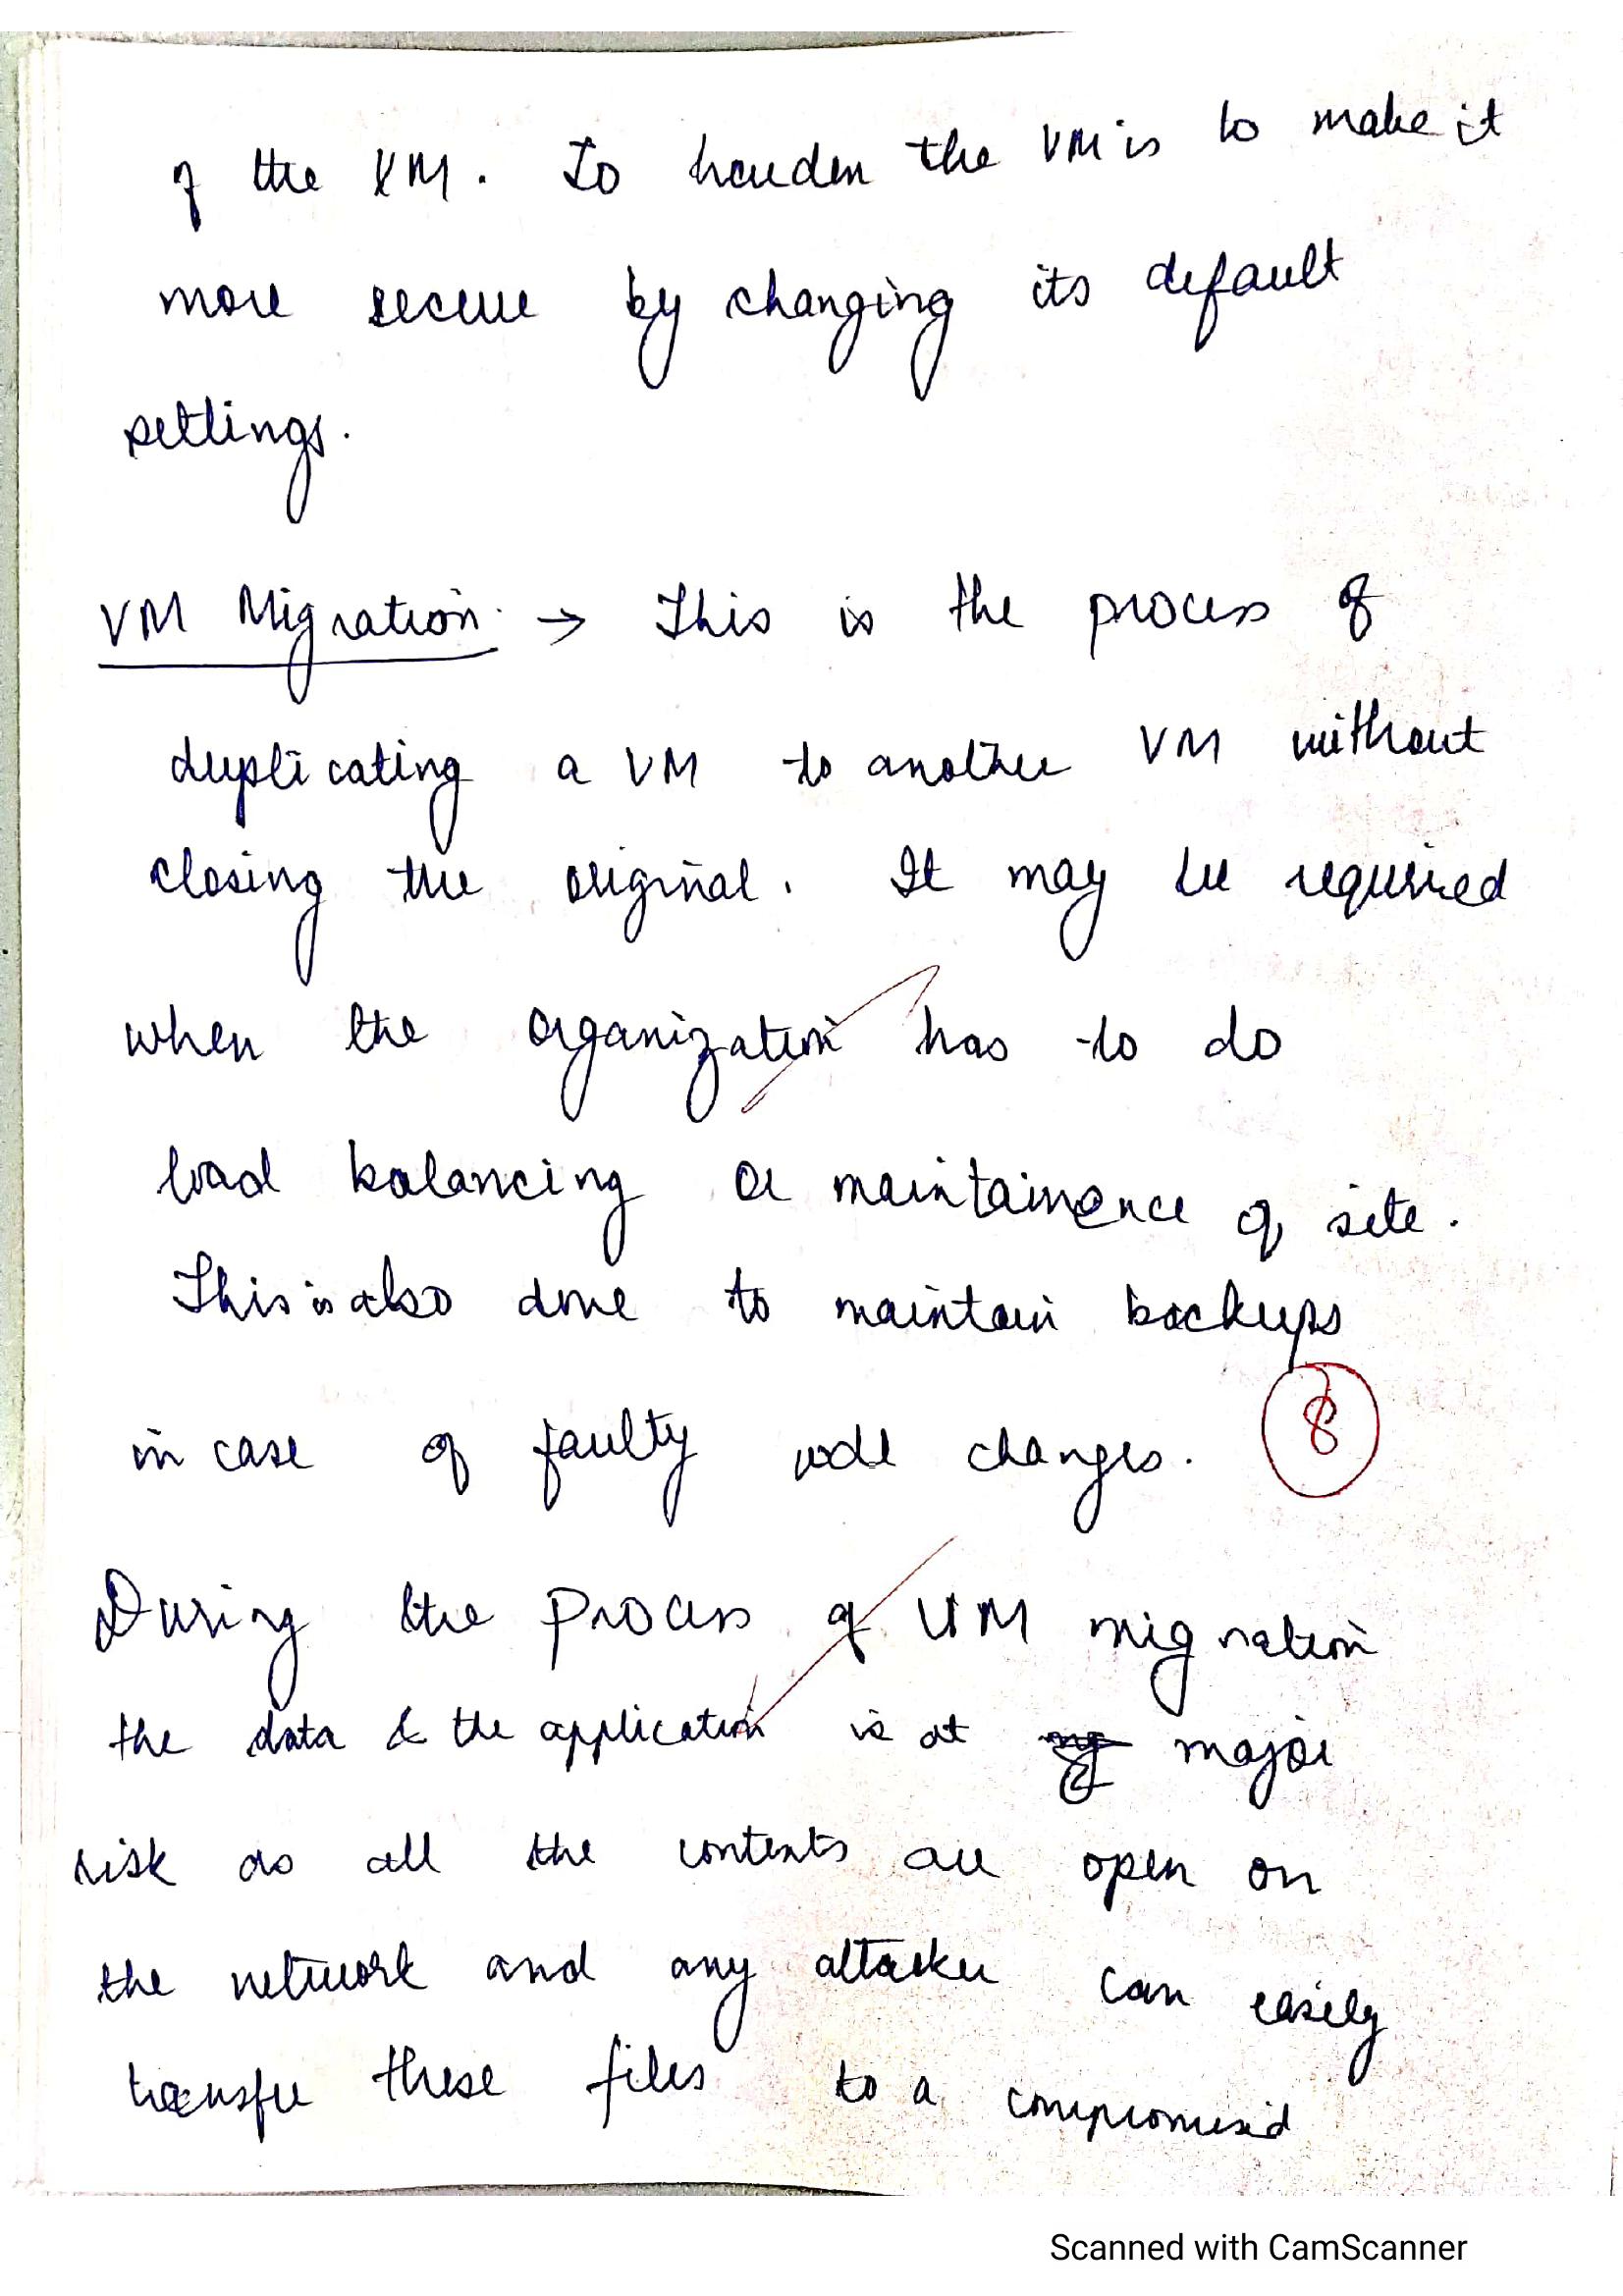 of the VM. To harden the VM is to make it
more secure by changing its default
settings.
VM Migration → This is the process of
duplicating a VM to another VM without
closing the original. It may be required
when the organization has to do
load balancing or maintainence of site.
This is also done to maintain backups
in case of faulty code changes.
8
During the process of VM migration
the data & the application is at major
risk as all the contents are open on
the network and any attacker can easily
transfer these files to a compromised
Scanned with CamScanner